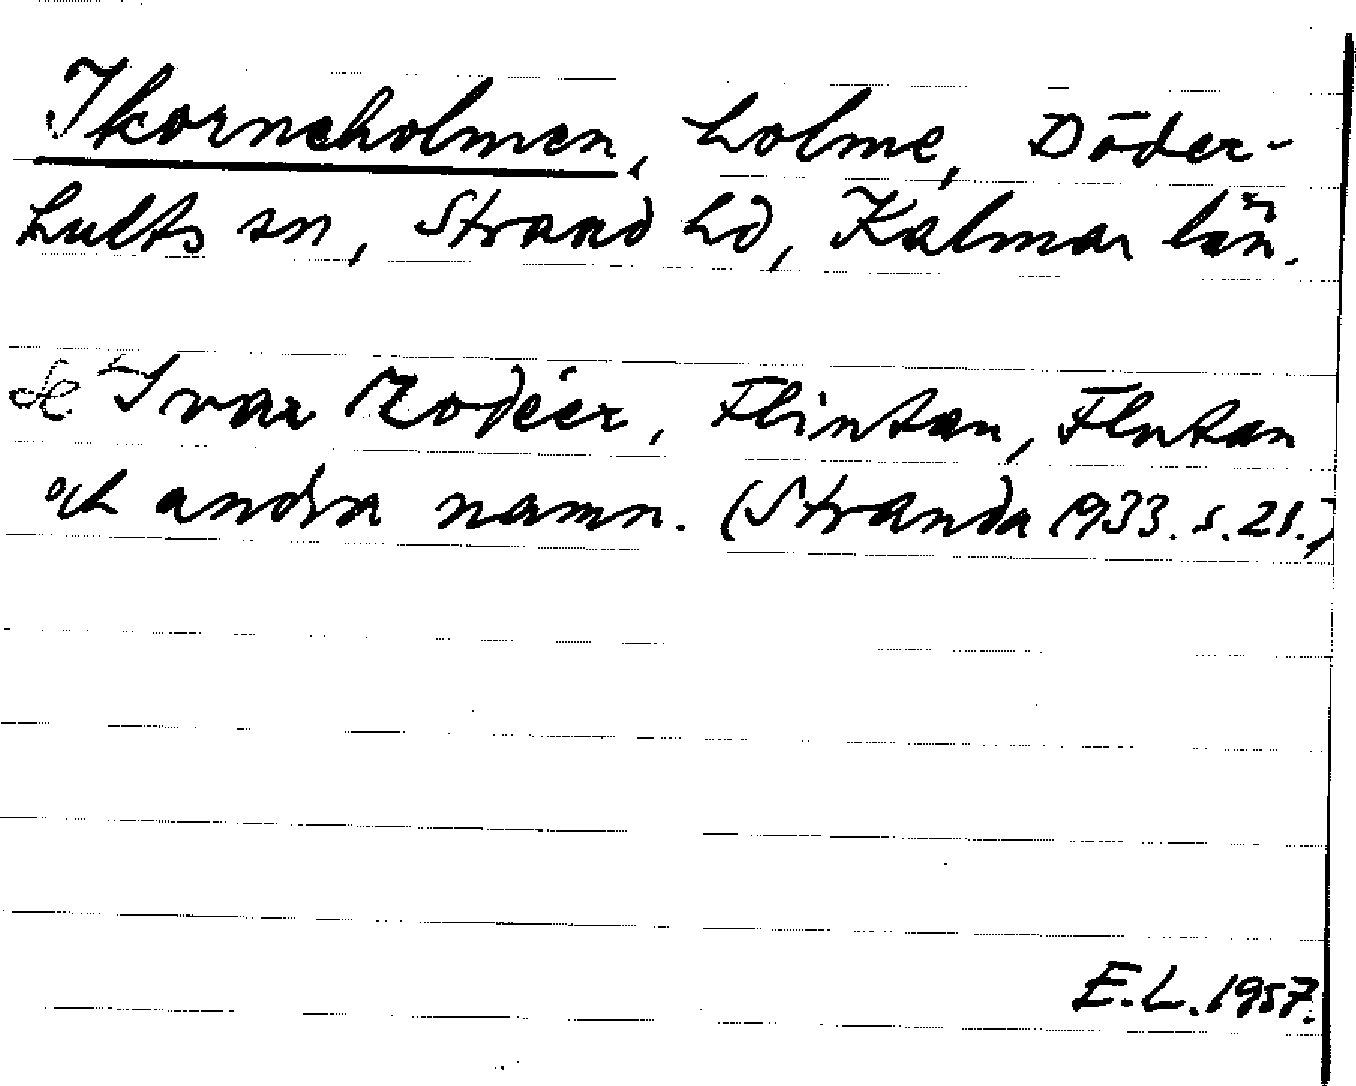 Ikorneholmen, holme, Döder-
hults sn, Strand hd, Kalmar län.
se Ivar Modéer, Flintan, Flutan
och andra namn. (Stranda 1933. s. 21.)
E.L. 1957.